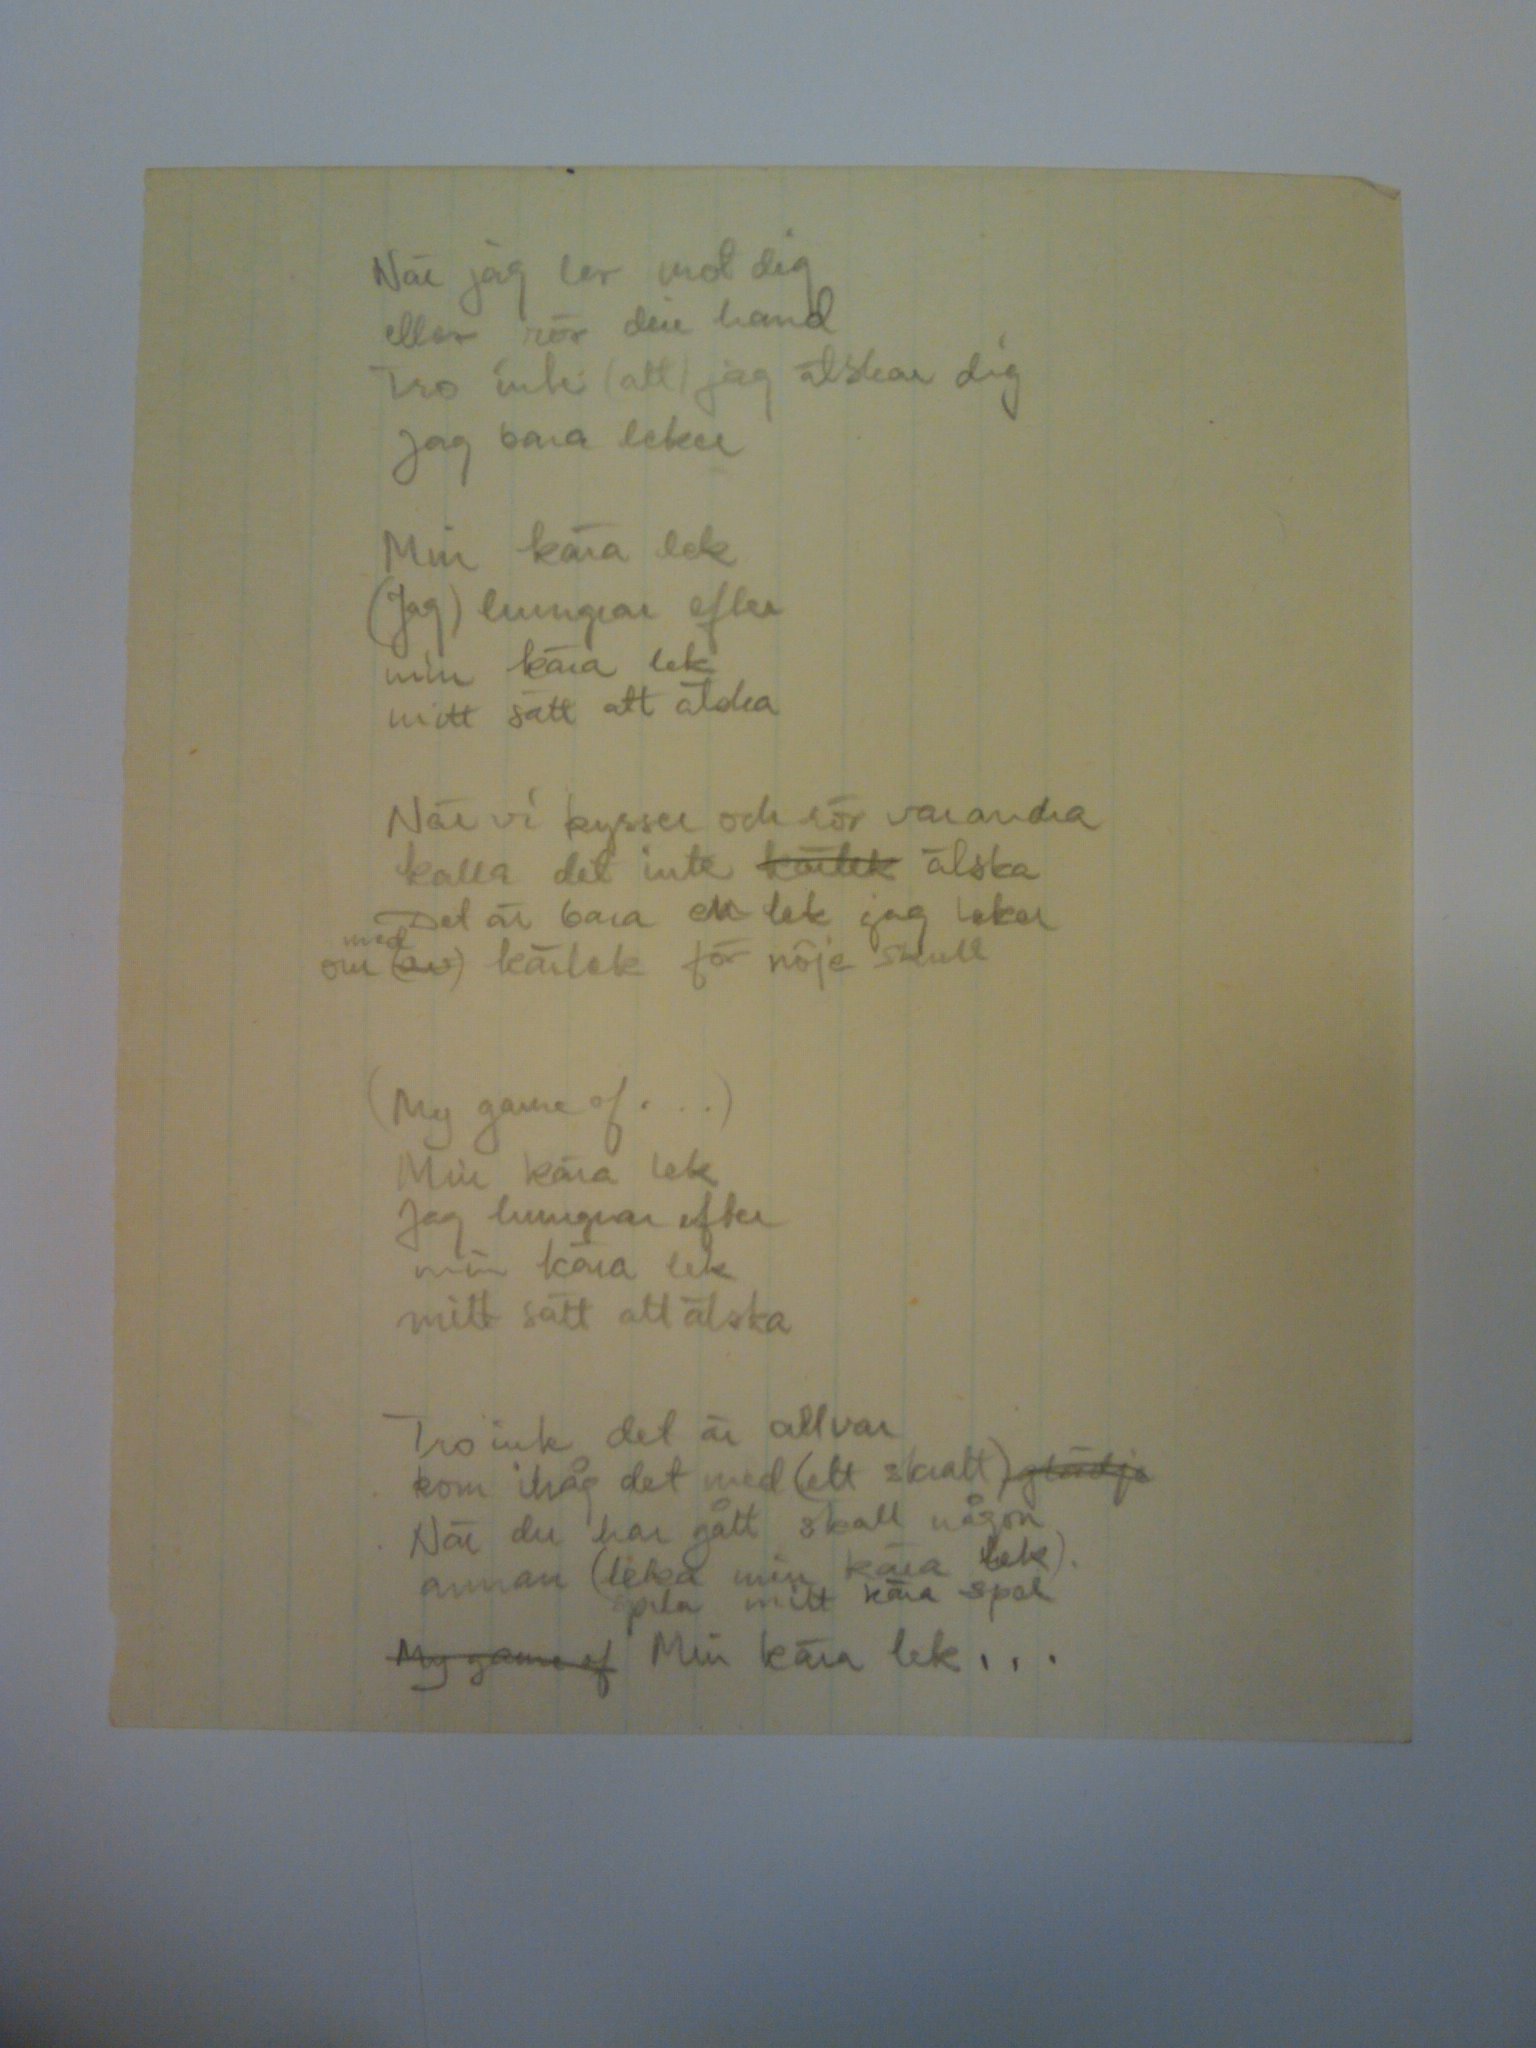 När jag ler mot dig
eller rör din hand
Tro inte (att) jag älskar dig
jag bara leker
Min kära lek
(Jag) hungrar efter
min kära lek
mitt sätt att älska
När vi kysser och rör varandra
kalla det inte kärlek älska
Det är bara en lek jag leker
med
om (av) kärlek för nöje skull
(My game of . . .)
Min kära lek
Jag hungrar efter
min kära lek
mitt sätt att älska
Tro ink det är allvar
kom ihåg det med (ett skratt) glädje
När du har gått skall någon
annan (leka min kära lek).
spela mitt kära spel
My game of Min kära lek . . .